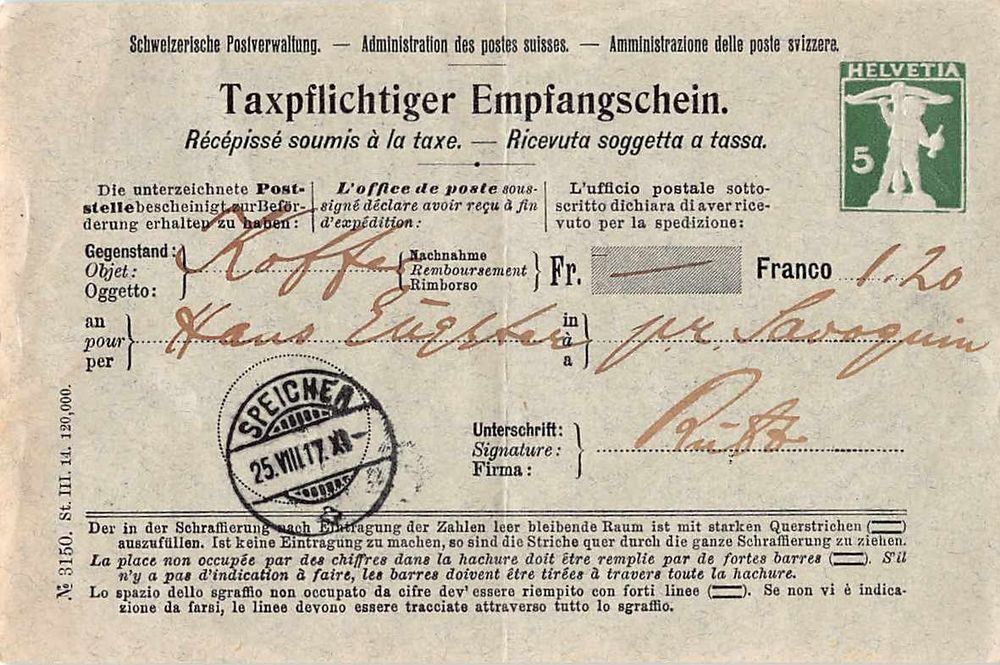 Schweizerische Postverwaltung. — Administration des postes suisses. — Amministrazione delle poste svizzere.
HELVETIA
5
Taxpflichtiger Empfangschein.
Récépissé soumis à la taxe. — Ricevuta soggetta a tassa.
Die unterzeichnete Post-
stelle bescheinigt zur Beför-
derung erhalten zu haben:
L'office de poste sous-
signé déclare avoir reçu à fin
d'expédition:
L'ufficio postale sotto-
scritto dichiara di aver rice-
vuto per la spedizione:
Gegenstand:
Objet:
Oggetto:
Koffer
Nachnahme
Remboursement
Rimborso
Fr. — Franco 1.20
an
pour
per
Hans Eugster
in
à
a
pr. Savognin
SPEICHER
25.VIII.17.XI–
Unterschrift:
Signature:
Firma:
№ 3150. St. III. 14. 120,000.
Der in der Schraffierung nach Eintragung der Zahlen leer bleibende Raum ist mit starken Querstrichen (══)
auszufüllen. Ist keine Eintragung zu machen, so sind die Striche quer durch die ganze Schraffierung zu ziehen.
La place non occupée par des chiffres dans la hachure doit être remplie par de fortes barres (══). S'il
n'y a pas d'indication à faire, les barres doivent être tirées à travers toute la hachure.
Lo spazio dello sgraffio non occupato da cifre dev' essere riempito con forti linee (══). Se non vi è indica-
zione da farsi, le linee devono essere tracciate attraverso tutto lo sgraffio.